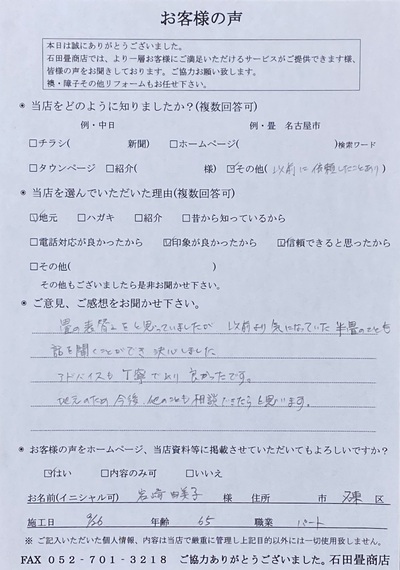 お客様の声
本日は誠にありがとうございました。
石田畳商店では、より一層お客様にご満足いただけるサービスがご提供できます様、
皆様の声をお聞きしております。ご協力お願い致します。
襖・障子その他リフォームもお任せ下さい。
◉ 当店をどのように知りましたか?(複数回答可)
例・中日 例・畳 名古屋市
□チラシ( 新聞) □ホームページ( )検索ワード
□タウンページ □紹介( 様) ☑その他(以前に依頼したことあり)
◉ 当店を選んでいただいた理由(複数回答可)
☑地元 □ハガキ □紹介 □昔から知っているから
□電話対応が良かったから ☑印象が良かったから ☑信頼できると思ったから
□その他( )
その他もございましたら是非お聞かせ下さい。
◉ ご意見、ご感想をお聞かせ下さい。
畳の表替えをと思っていましたが 以前より気になっていた半畳のことも
話を聞くことができ 決心しました
アドバイスも丁寧であり 良かったです。
地元のため 今後 他のことも相談できたらと思います。
◉ お客様の声をホームページ、当店資料等に掲載させていただいてもよろしいですか?
☑はい □内容のみ可 □いいえ
お名前(イニシャル可) 岩﨑 由美子 様 住所 市 東 区
施工日 9/26 年齢 65 職業 パート
※ ご記入いただいた個人情報、内容は当店で厳重に管理し上記目的以外には一切使用致しません。
FAX 052-701-3218 ご協力ありがとうございました。石田畳商店